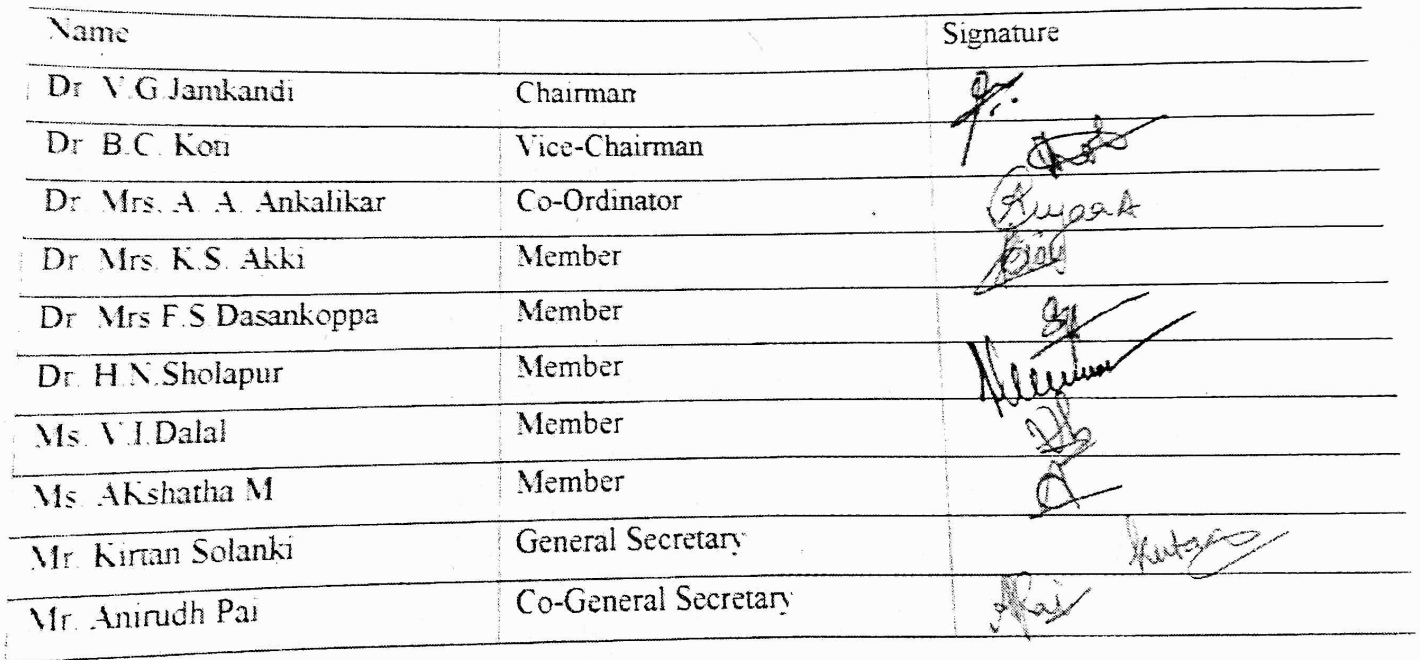 Name Signature
Dr V.G.Jamkandi Chairman
Dr B.C. Koti Vice-Chairman
Dr Mrs. A. A. Ankalikar Co-Ordinator
Dr Mrs. K.S. Akki Member
Dr Mrs F.S Dasankoppa Member
Dr. H.N.Sholapur Member
Ms. V.I.Dalal Member
Ms. AKshatha M Member
Mr. Kirtan Solanki General Secretary
Mr. Anirudh Pai Co-General Secretary